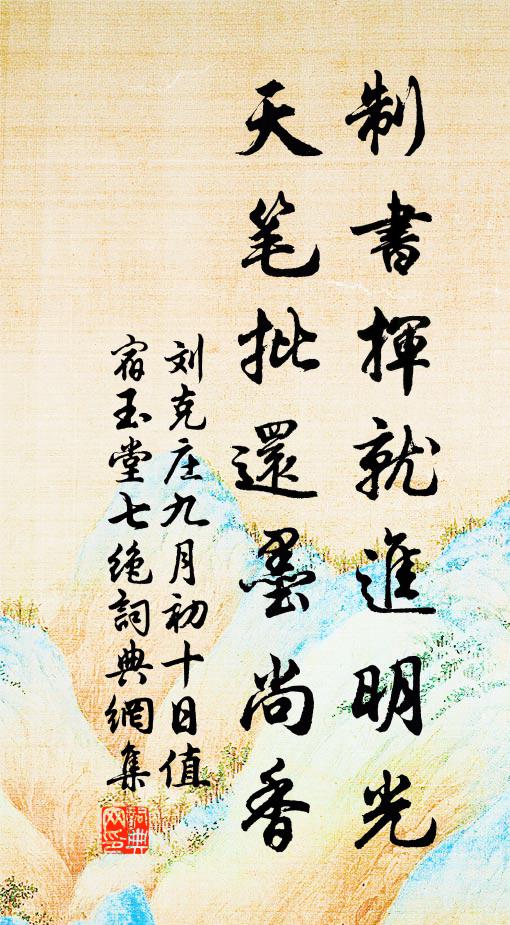 制書揮就進明光
天笔批還墨尚香
刘克庄九月初十日值
宿玉堂七绝詞典網集